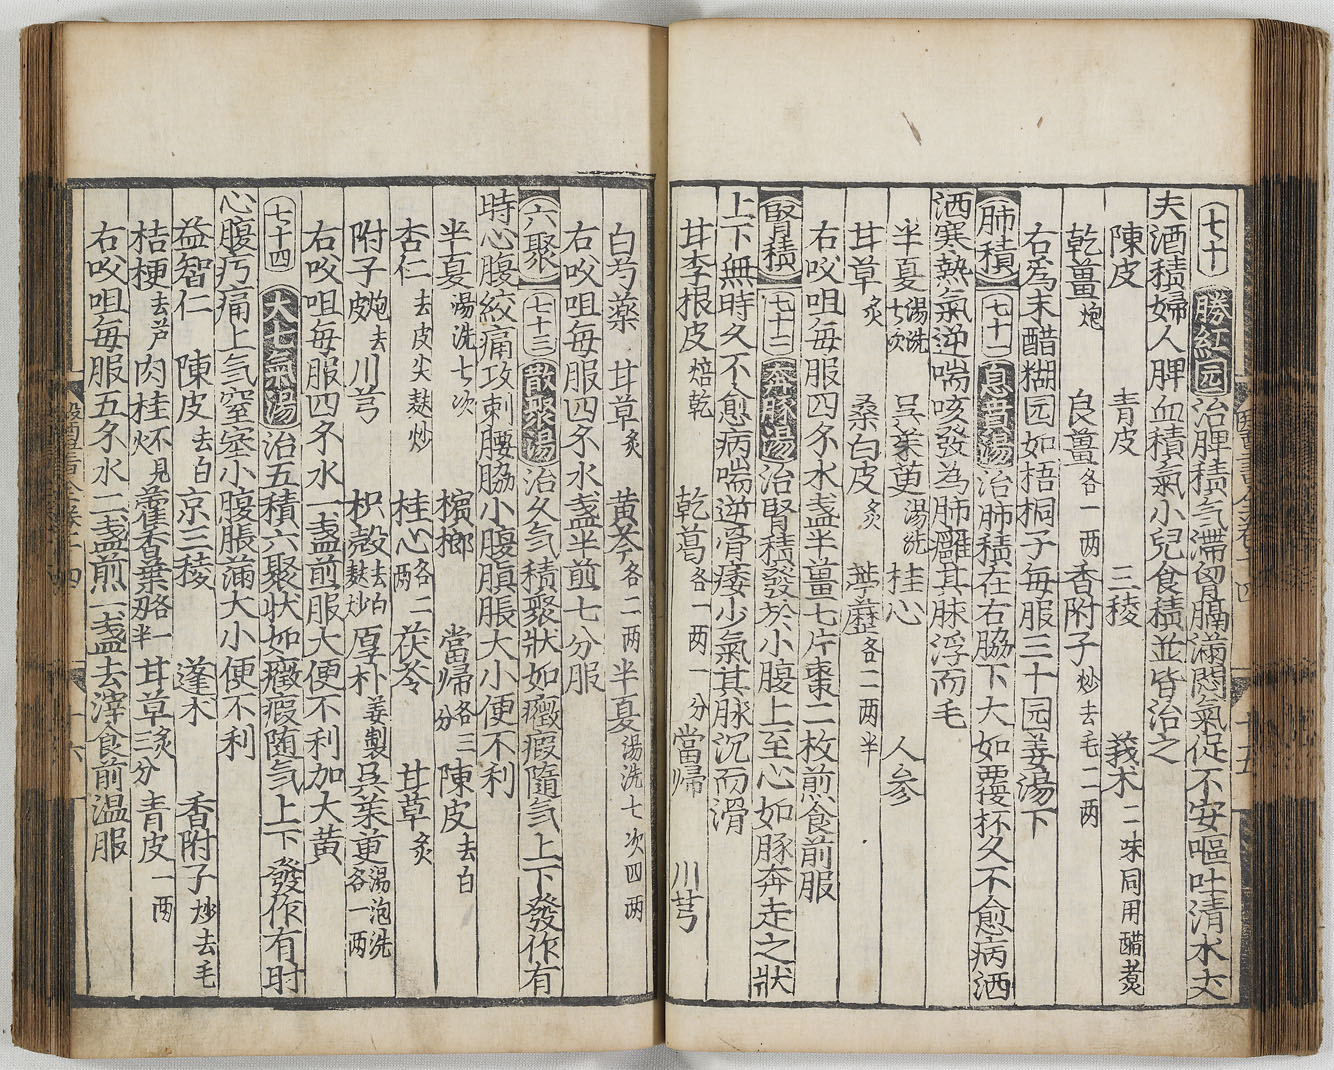 七十 勝紅园 治脾積气滯胷膈滿悶氣促不安嘔吐清水丈
夫酒積婦人脾血積氣小兒食積並皆治之
陳皮 青皮 三稜 莪朮二味同用醋煮
乾薑炮 良薑各一两 香附子炒去毛二两
右为末醋糊园如梧桐子每服三十园姜湯下
肺積 七十一 息賁湯 治肺積在右脇下大如覆杯久不愈病洒
洒寒熱氣逆喘咳發為肺癰其脉浮而毛
半夏湯洗七次 吳茱萸湯洗 桂心 人參
甘草炙 桑白皮炙 葶藶各二两半
右㕮咀每服四夕水盞半薑七片棗二枚煎食前服
腎積 七十二 奔豚湯 治腎積發於小腹上至心如豚奔走之狀
上下無時久不愈病喘逆骨痿少氣其脉沉而滑
甘李根皮焙乾 乾葛各一两一分 當歸 川芎
白芍藥 甘草炙 黄芩各二两 半夏湯洗七次四两
右㕮咀每服四夕水盞半煎七分服
六聚 七十三 散聚湯 治久气積聚狀如癥瘕隨气上下發作有
時心腹絞痛攻刺腰脇小腹䐜脹大小便不利
半夏湯洗七次 檳榔 當歸各三分 陳皮去白
杏仁去皮尖麸炒 桂心各二两 茯苓 甘草炙
附子炮去皮 川芎 枳殼去白麸炒 厚朴姜製 吳茱萸湯泡洗各一两
右㕮咀每服四夕水一盞煎服大便不利加大黄
七十四 大七氣湯 治五積六聚状如癥瘕随气上下發作有时
心腹㽲痛上气窒塞小腹脹滿大小便不利
益智仁 陳皮去白 京三稜 蓬朮 香附子炒去毛
桔梗去芦 肉桂不見火 藿香葉各一两半 甘草三分炙 青皮一两
右㕮咀每服五夕水二盞煎一盞去滓食前温服